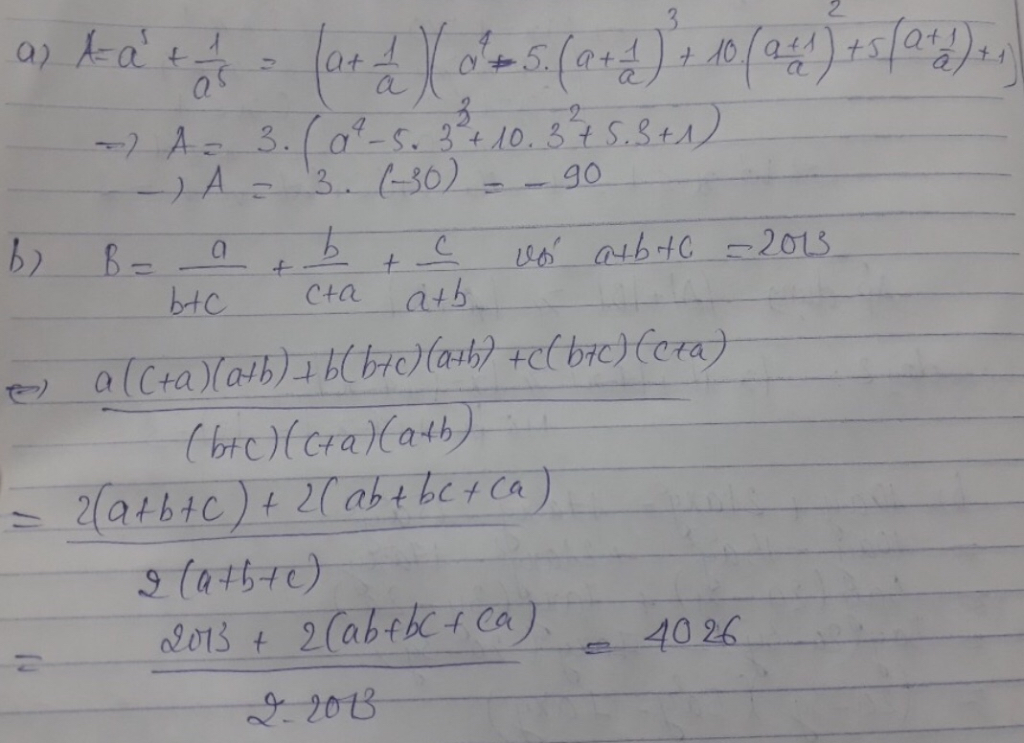 a) A = a⁵ + 1/a⁵ = (a + 1/a)(a⁴ - 5.(a + 1/a)³ + 10.(a+1/a)² + 5(a+1/a) + 1)
→ A = 3.(a⁴ - 5.3³ + 10.3² + 5.3 + 1)
→ A = 3.(-30) = -90
b) B = a/(b+c) + b/(c+a) + c/(a+b) với a+b+c = 2013
⇔ (a(c+a)(a+b) + b(b+c)(a+b) + c(b+c)(c+a))/((b+c)(c+a)(a+b))
= (2(a+b+c) + 2(ab+bc+ca))/(2(a+b+c))
= (2013 + 2(ab+bc+ca))/(2.2013) = 4026